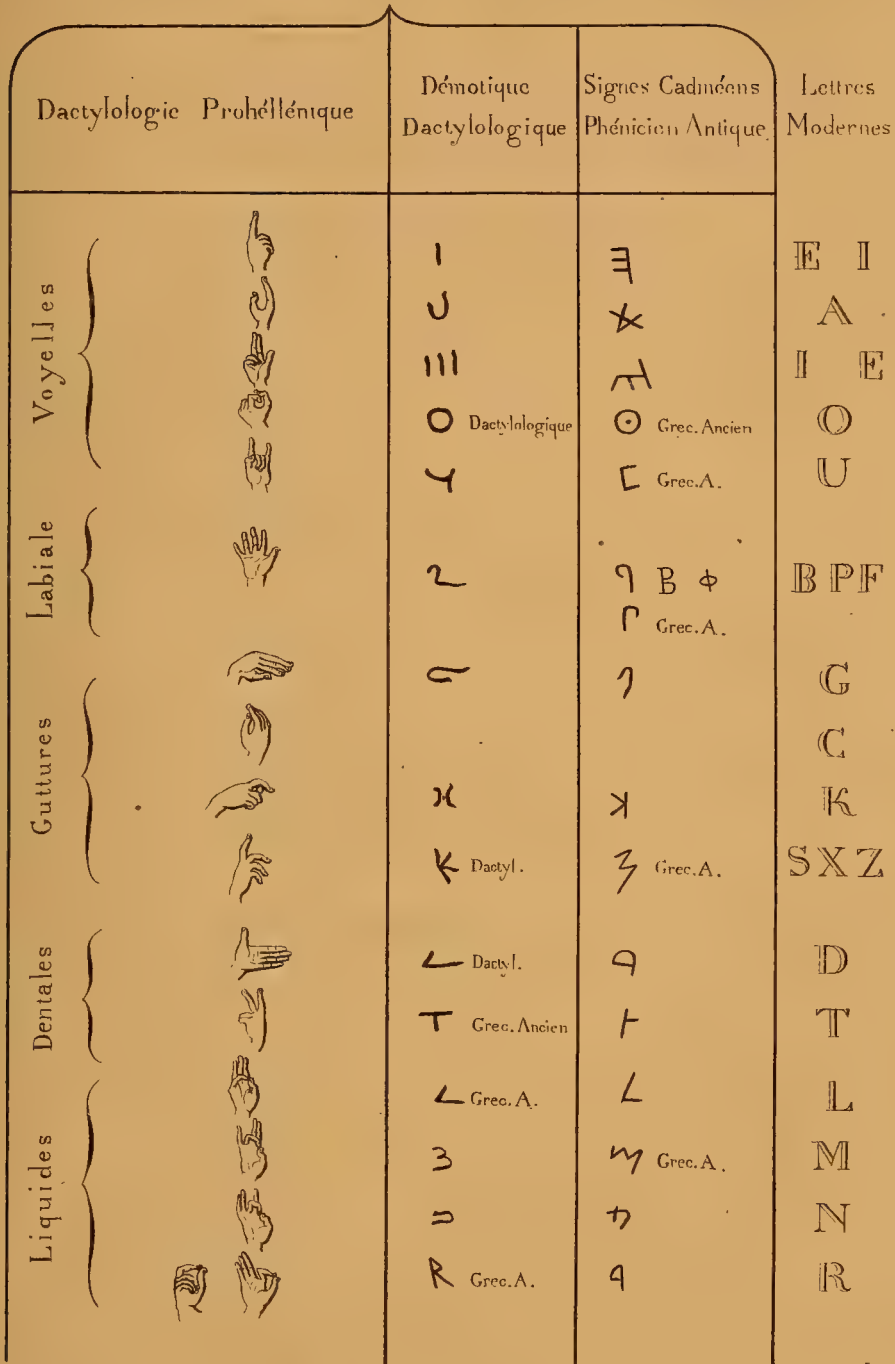 Dactylologie Prohéllénique
Démotique
Dactylologique
Signes Cadméens
Phénicien Antique
Lettres
Modernes
Voyelles
E I
A
I E
O Dactylologique
Grec. Ancien
O
Grec. A.
U
Labiale
B Φ
B P F
Grec. A.
Guttures
G
C
K
K Dactyl.
Grec. A.
S X Z
Dentales
Dactyl.
D
T Grec. Ancien
T
Liquides
Grec. A.
L
3
Grec. A.
M
N
R Grec. A.
R